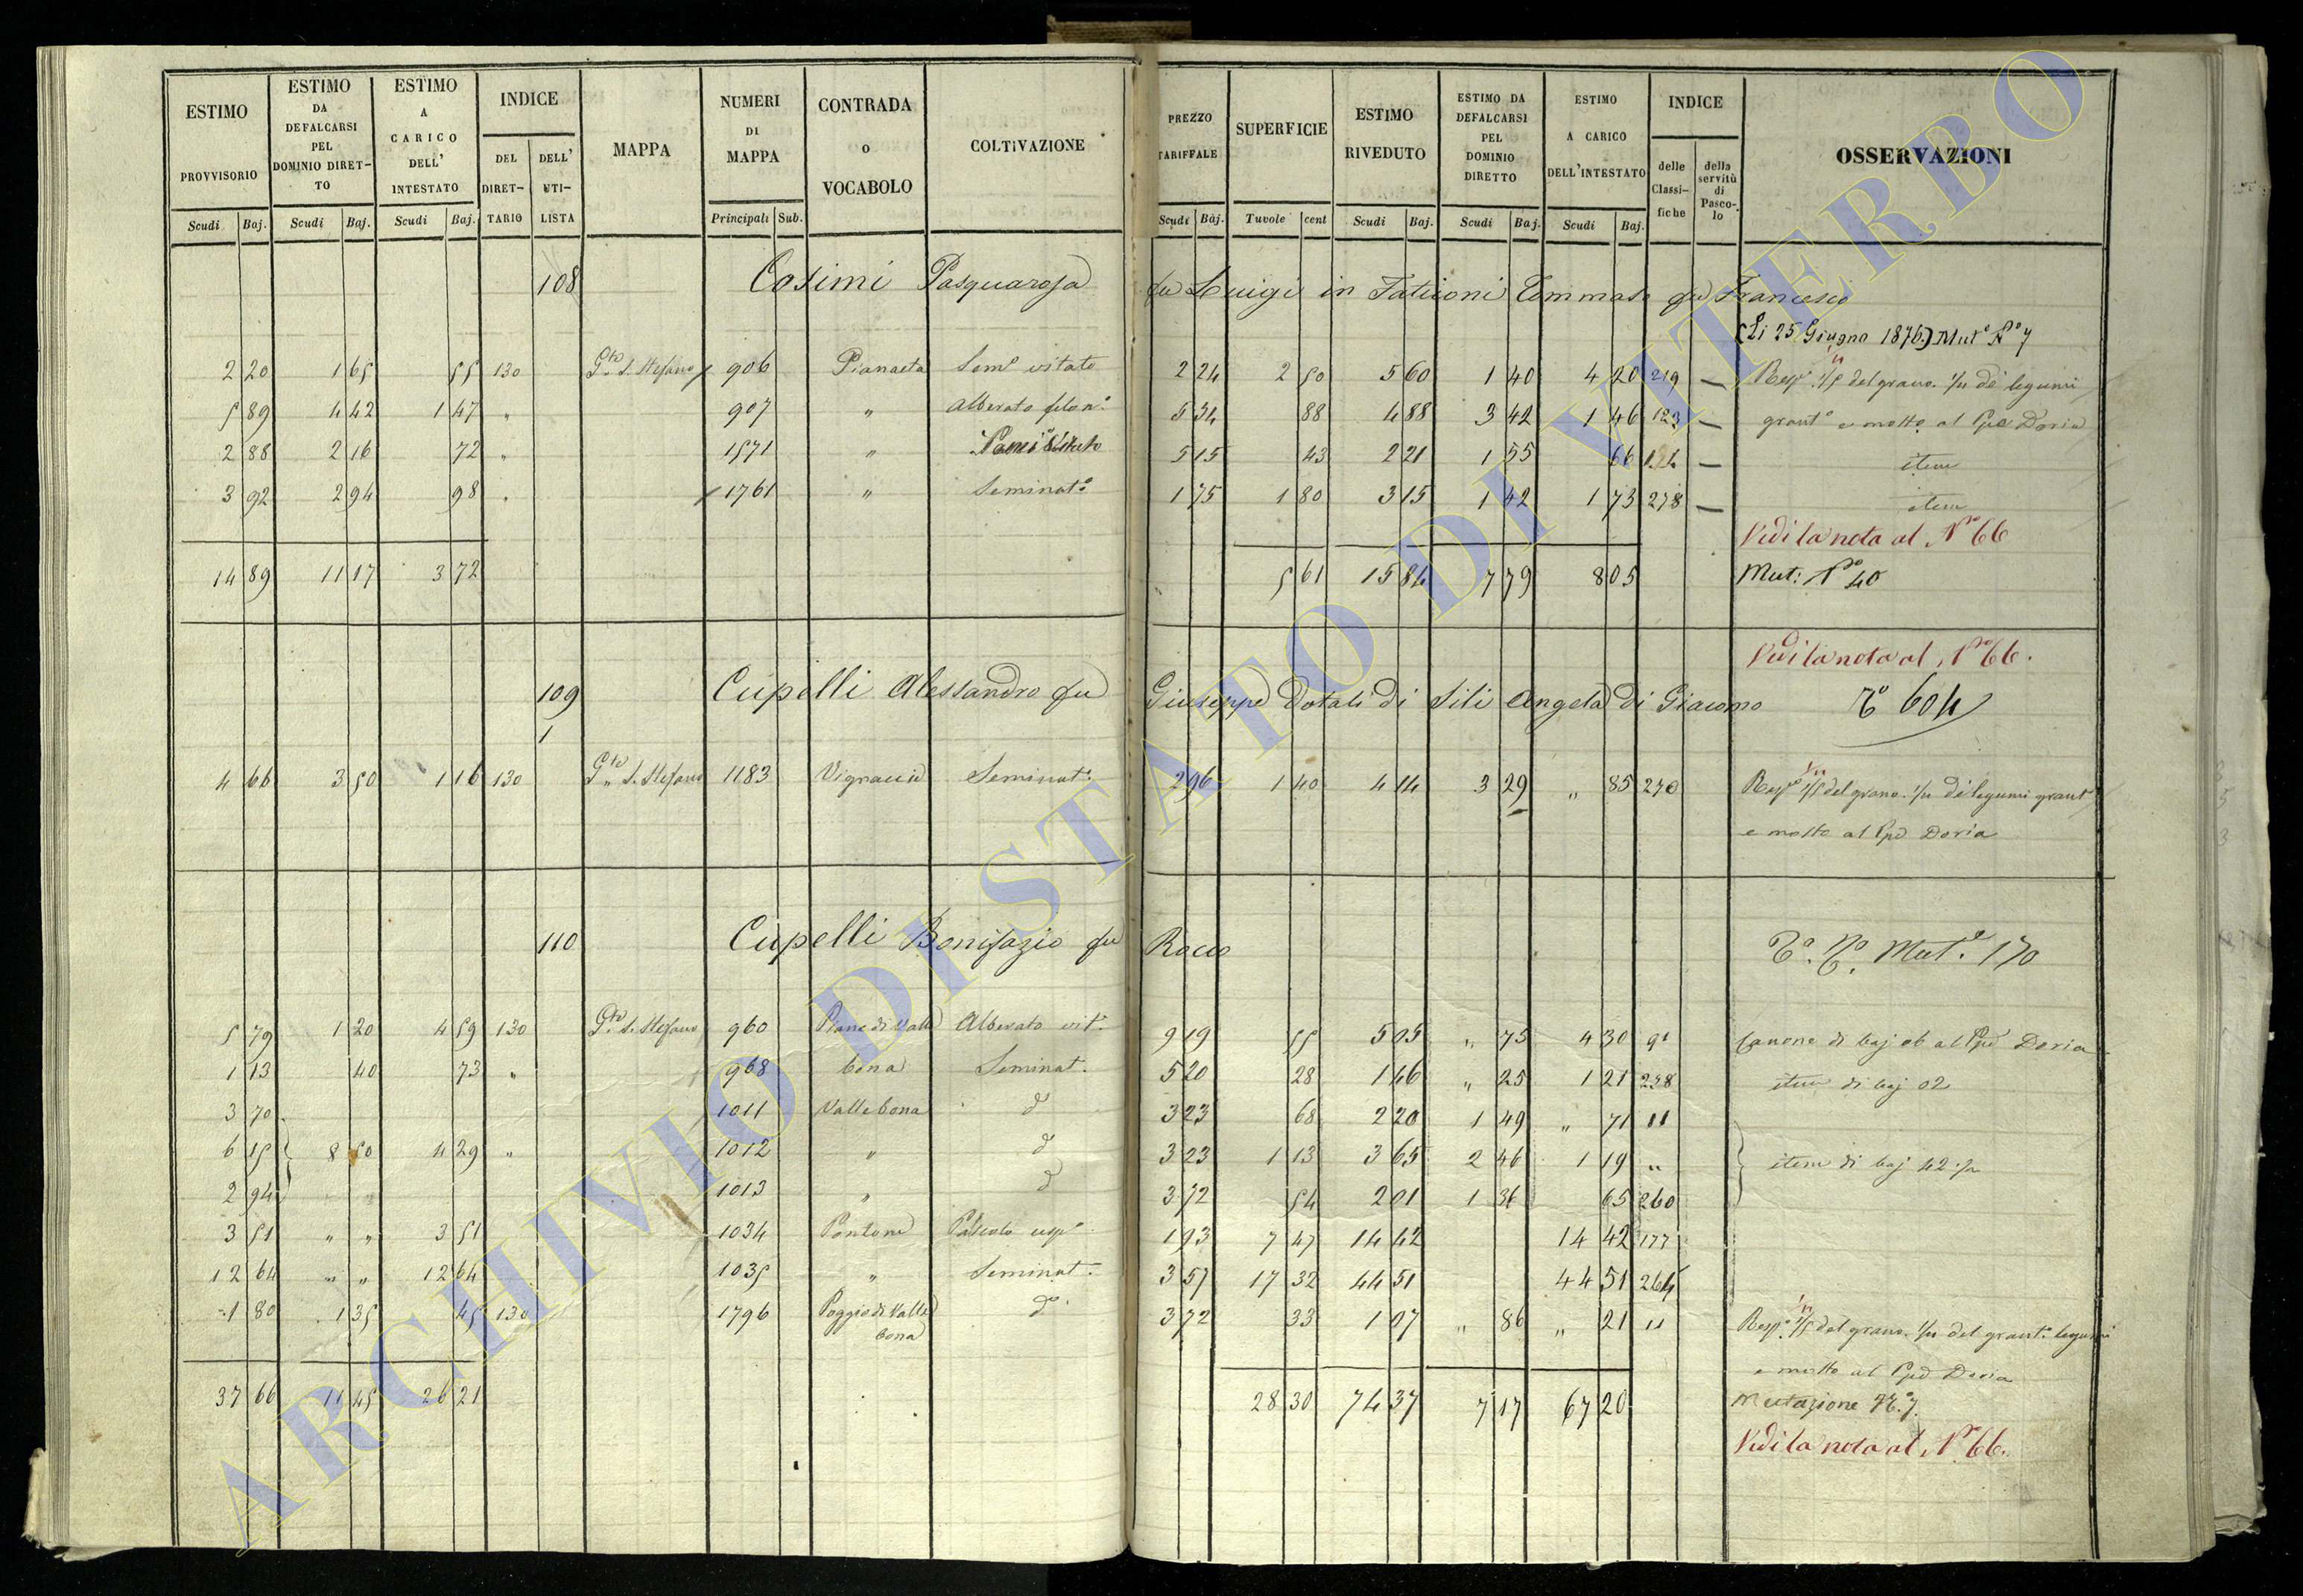 ESTIMO PROVVISORIO Scudi Baj.
ESTIMO DA DEFALCARSI PEL DOMINIO DIRETTO Scudi Baj.
ESTIMO A CARICO DELL' INTESTATO Scudi Baj.
INDICE DEL DIRETTARIO DELL' UTILISTA
MAPPA
NUMERI DI MAPPA Principali Sub.
CONTRADA O VOCABOLO
COLTIVAZIONE
PREZZO TARIFFALE Scudi Baj.
SUPERFICIE Tavole cent
ESTIMO RIVEDUTO Scudi Baj.
ESTIMO DA DEFALCARSI PEL DOMINIO DIRETTO Scudi Baj.
ESTIMO A CARICO DELL'INTESTATO Scudi Baj.
INDICE delle Classifiche della servitù di Pascolo
OSSERVAZIONI
108 Cosimi Pasquarosa fu Luigi in Tommaso fu Francesco
(Li 25 Giugno 1876) Mut.e N.o 7
2 20 1 65 55 130 P.to S. Stefano 906 Pianaeta Sem.o vitato 2 24 2 50 5 60 1 40 4 20 219 — 1/5 del grano. di legumi
5 89 4 42 1 47 " 907 " Alberato 5 34 88 4 88 3 42 1 46 123 — e mosto al Ppe Doria
2 88 2 16 72 " 1571 " 5 15 43 2 21 1 55 66 — item
3 92 2 94 98 " 1761 " Seminat.o 1 75 1 80 3 15 1 42 1 73 278 — item
Vedi la nota al N.ro 66
14 89 11 17 3 72 5 61 15 84 7 79 8 05 Mut: N.ro 40
Vedi la nota al N.ro 66.
109 Cupelli Alessandro fu Giuseppe Dotali di Sili Angela di Giacomo 604
1
4 66 3 50 1 16 130 P.to S. Stefano 1183 Seminat.o 2 96 1 40 4 14 3 29 " 85 270 1/5 del grano. di legumi
e mosto al Ppe Doria
110 Cupelli Bonifazio fu Rocco Mut.e 170
5 79 1 20 4 59 130 P.to S. Stefano 960 Piane di Valle Alberato vit.o 9 19 55 5 05 " 75 4 30 91 Canone di baj 06 al Ppe Doria
1 13 40 73 " 968 bona Seminat. 5 20 28 1 46 " 25 1 21 258 item di baj 02
3 70 1011 Valle bona d 3 23 68 2 20 1 49 " 71 "
6 15 8 50 4 29 " 1012 " d 3 23 1 13 3 65 2 46 1 19 " item di baj 42
2 94 " " 1013 " d 3 72 54 2 01 1 36 65 260
3 51 " " 3 51 1034 Pontone Pascolo 1 93 7 47 14 42 14 42 177
12 64 " " 12 64 1035 " Seminat. 2 57 17 32 44 51 44 51 264
1 80 1 35 45 130 1796 Poggio di Valle bona d.o 3 72 33 1 07 " 86 " 21 " 1/5 del grano. legumi
e mosto al Ppe Doria
37 66 11 45 26 21 28 30 74 37 7 17 67 20 Mutazione N.o 7.
Vedi la nota al N.ro 66.
ARCHIVIO DI STATO DI VITERBO